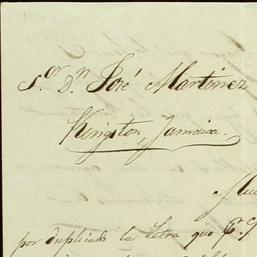 Sor. Dn. José Martinez
Kingston, Jamaica.
Mui
por duplicado la Letra que